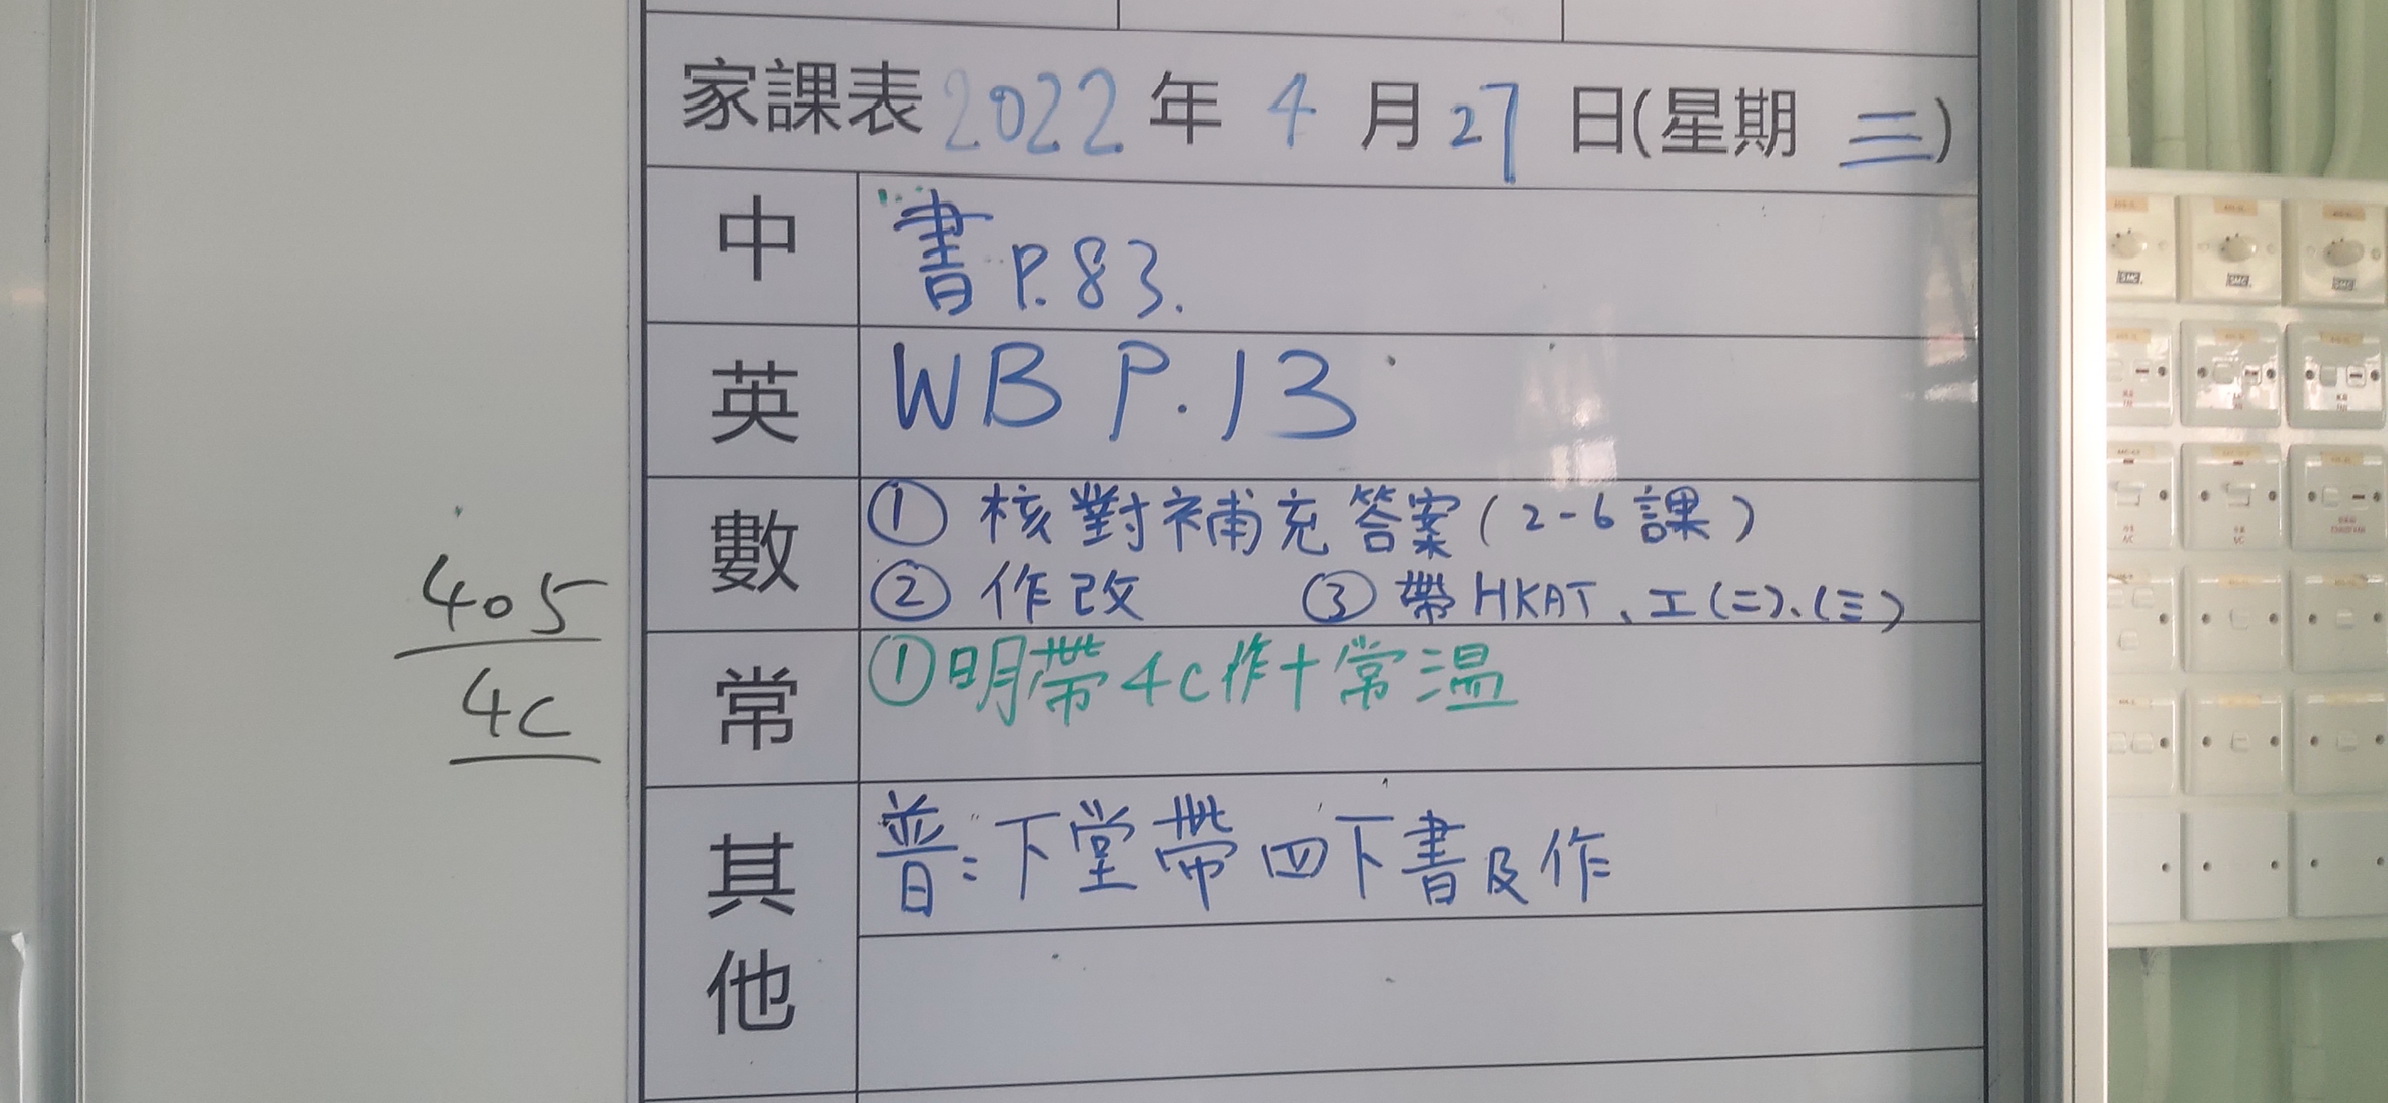 家課表 2022 年 4 月 27 日(星期 三)
中 書 P.83.
英 WB P.13
數 ① 核對補充答案(2-6課)
② 作改 ③ 帶HKAT、工(二)、(三)
常 ①明帶4C作+常溫
其他 普:下堂帶四下書及作
405
4C